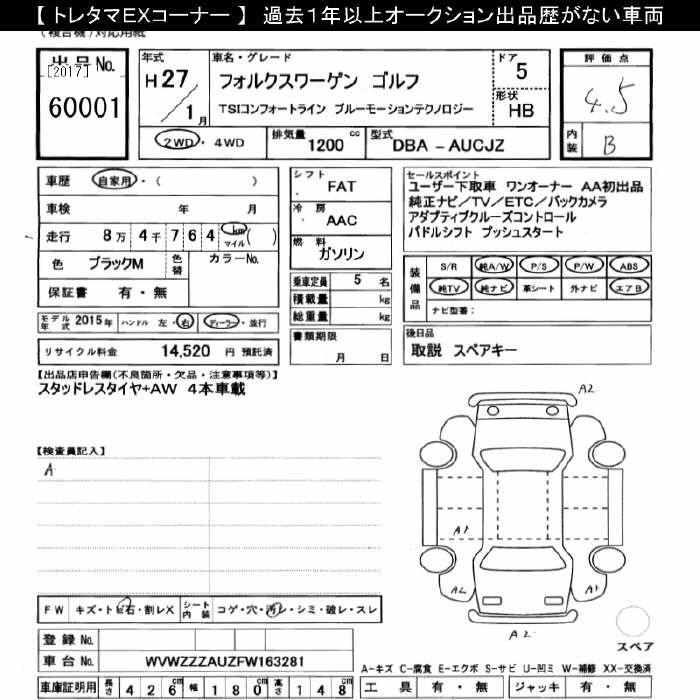 【 トレタマEXコーナー 】 過去１年以上オークション出品歴がない車両
(複合機)対応用紙
出品No.
[2017]
60001
年式
H 27
/ 1 月
車名・グレード
フォルクスワーゲン ゴルフ
TSIコンフォートライン ブルーモーションテクノロジー
ドア
5
形状
HB
2WD・4WD
排気量 1200 cc
型式 DBA － AUCJZ
評価点
4.5
内装 B
車歴 自家用・( )
車検 年 月
走行 8万 4千 7 6 4 km マイル ( )
色 ブラックM 色替 カラーNo.
保証書 有・無
モデル年式 2015年 ハンドル 左・右 ディーラー・並行
リサイクル料金 14,520 円 預託済
シフト
FAT
冷房
AAC
燃料
ガソリン
乗車定員 5 名
積載量 kg
総重量 kg
書類期限
月 日
セールスポイント
ユーザー下取車 ワンオーナー AA初出品
純正ナビ／TV／ETC／バックカメラ
アダプティブクルーズコントロール
パドルシフト プッシュスタート
装備品
S/R 純A/W P/S P/W ABS
純TV 純ナビ 革シート 外ナビ エアB
ナビ型番：
後日品
取説 スペアキー
【出品店申告欄(不良箇所・欠品・注意事項等)】
スタッドレスタイヤ+AW 4本車載
【検査員記入】
A
A2
A1
A2
A1
A2
スペア
FW キズ・トビ石・割レX シート内装 コゲ・穴・汚レ・シミ・破レ・スレ
登録 No.
車台 No. WVWZZZAUZFW163281
車庫証明用 長さ 426cm 幅 180cm 高さ 148cm
A－キズ C－腐食 E－エクボ S－サビ U－凹ミ W－補修 XX－交換済
工具 有・無 ジャッキ 有・無